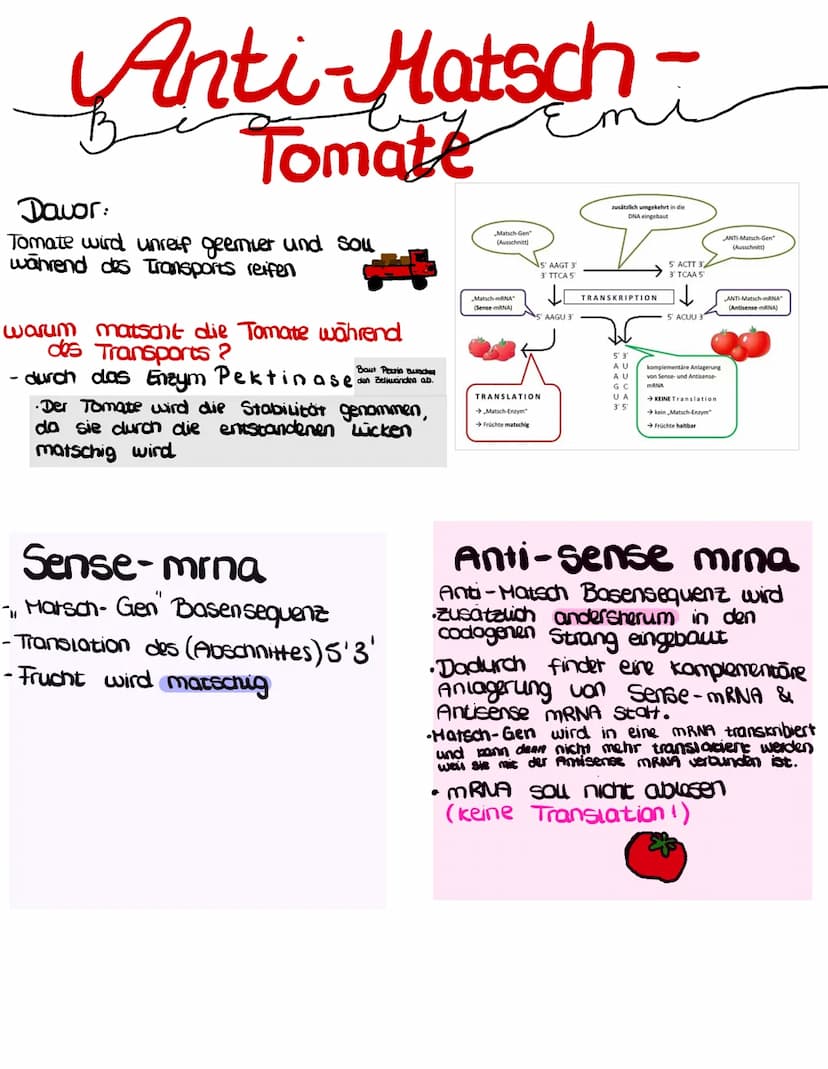 Anti-Matsch-
Tomate
Bio by Emi
Davor:
Tomate wird unreif geerntet und soll
während des Transports reifen
warum matscht die Tomate während
des Transports?
- durch das Enzym Pektinase
Baut Pektin zwischen
den Zellwänden ab.
·Der Tomate wird die Stabilität genommen,
da sie durch die entstandenen Lücken
matschig wird
zusätzlich umgekehrt in die
DNA eingebaut
„Matsch-Gen"
(Ausschnitt)
„ANTI-Matsch-Gen"
(Ausschnitt)
5' AAGT 3'
3' TTCA 5'
5' ACTT 3'
3' TCAA 5'
„Matsch-mRNA"
(Sense-mRNA)
TRANSKRIPTION
„ANTI-Matsch-mRNA"
(Antisense-mRNA)
5' AAGU 3'
5' ACUU 3'
5' 3'
A U
A U
G C
U A
3' 5'
TRANSLATION
→ „Matsch-Enzym"
→ Früchte matschig
komplementäre Anlagerung
von Sense- und Antisense-
mRNA
→ KEINE Translation
→ kein „Matsch-Enzym"
→ Früchte haltbar
Sense-mrna
-„Matsch-Gen" Basensequenz
- Translation des (Abschnittes) 5'3'
- Frucht wird matschig
Anti-sense mrna
Anti-Matsch Basensequenz wird
·zusätzlich andersherum in den
codogenen Strang eingebaut
·Dadurch findet eine komplementäre
Anlagerung von Sense-mRNA &
Antisense mRNA statt.
·Matsch-Gen wird in eine mRNA transkribiert
und kann dann nicht mehr translatiert werden
weil sie mit der Antisense mRNA verbunden ist.
· mRNA soll nicht ablesen
(keine Translation!)